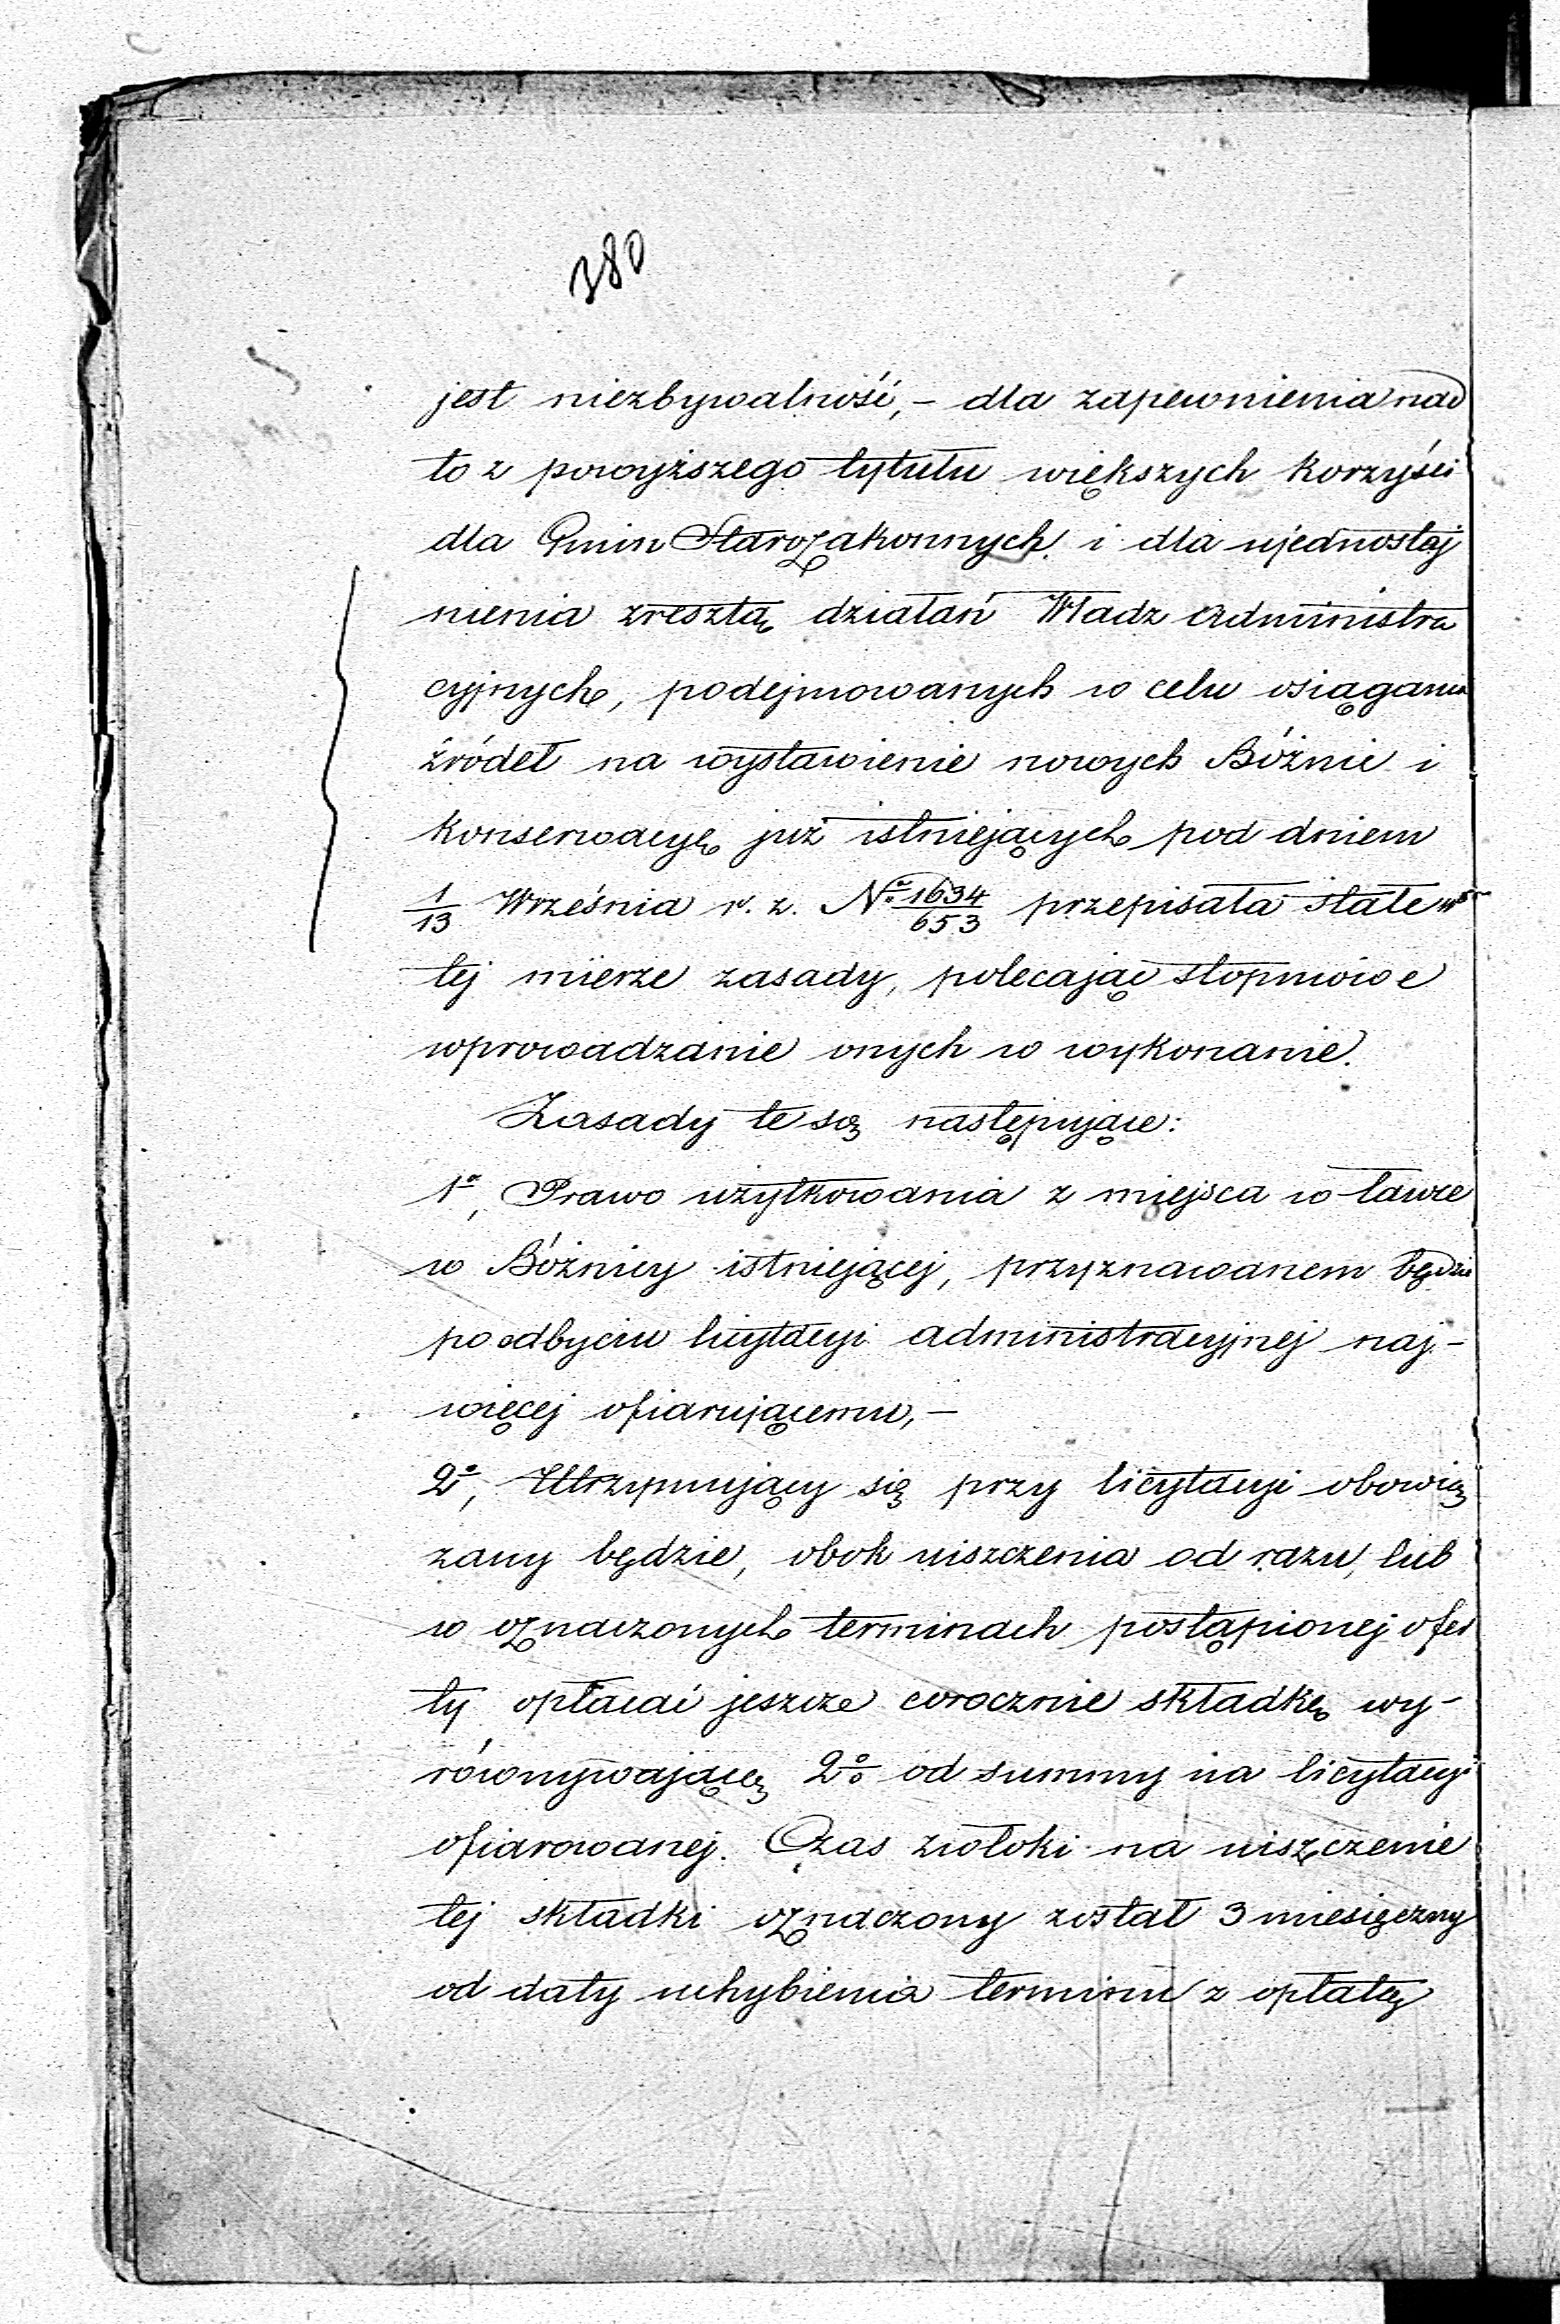 380
jest niezbywalność, – dla zapewnienia nad
to z powyższego tytułu większych korzyści
dla Gmin Starozakonnych i dla ujednostaj
nienia zresztą działań Władz Administra
cyjnych, podejmowanych w celu osiągania
źródeł na wystawienie nowych Bóżnic i
konserwacyę już istniejących pod dniem
1/13 Września r. z. No 1634/653 przepisała stałe w
tej mierze zasady, polecając stopniowe
wprowadzanie onych w wykonanie.
Zasady te są następujące:
1o, Prawo użytkowania z miejsca w ławce
w Bóżnicy istniejącej, przyznawanem będzie
po odbyciu licytacyi administracyjnej naj-
więcej ofiarującemu, –
2o, Utrzymujący się przy licytacyi obowią
zany będzie, obok uiszczenia od razu, lub
w oznaczonych terminach postąpionej ofer
ty opłacać jeszcze corocznie składkę wy-
równywającą 2% od summy na licytacyi
ofiarowanej. Czas zwłoki na uiszczenie
tej składki oznaczony został 3 miesięczny
od daty uchybienia terminu z opłatą